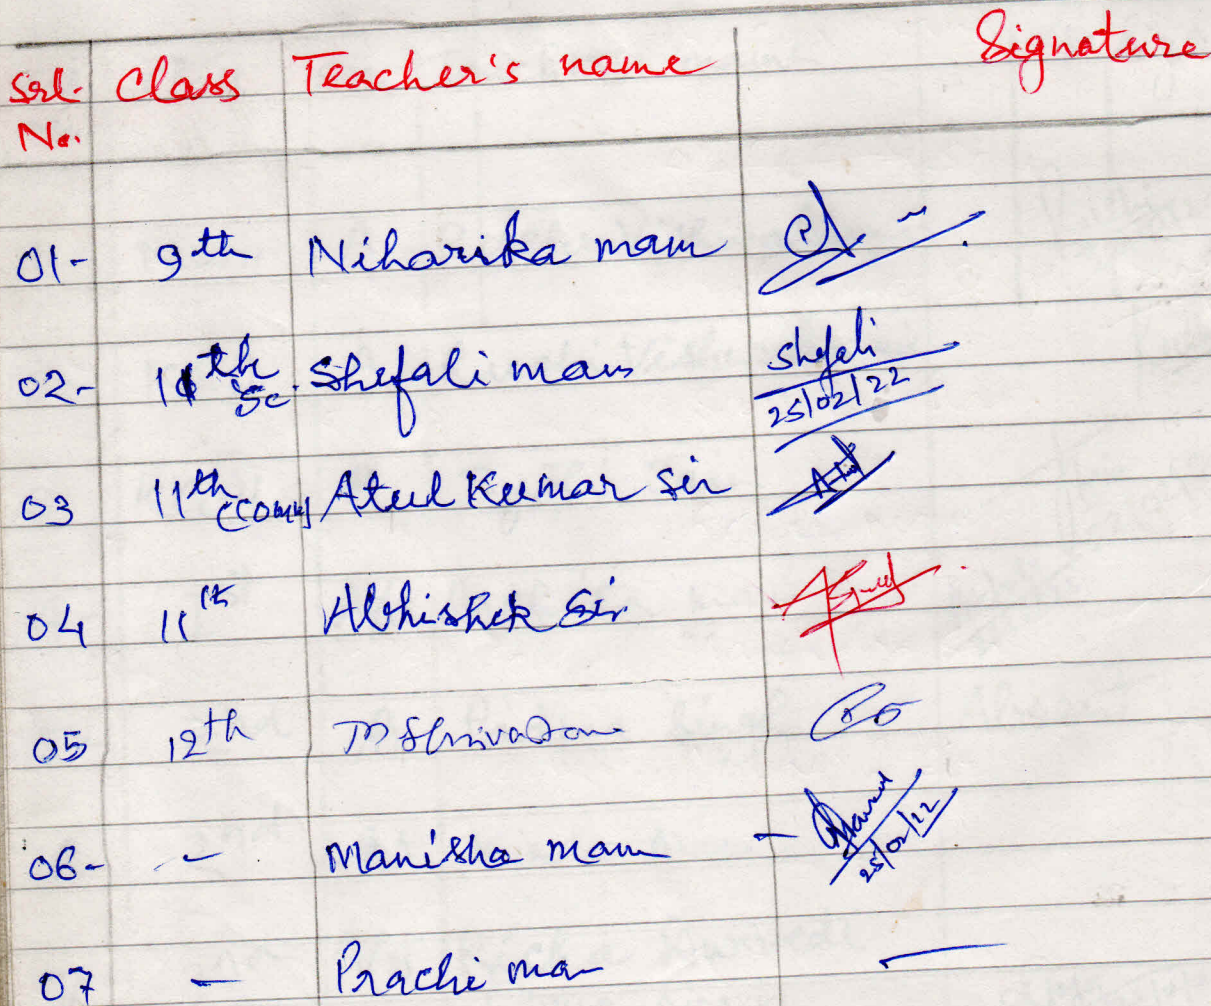 Srl. Class Teacher's name Signature
No.
01- 9th Niharika mam
02- 11th Sc. Shefali mam Shefali
25/02/22
03 11th (Comm) Atul Kumar sir Atul
04 11th Abhishek Sir
05 12th
06- - Manisha mam -
25/02/22
07 - Prachi mam -